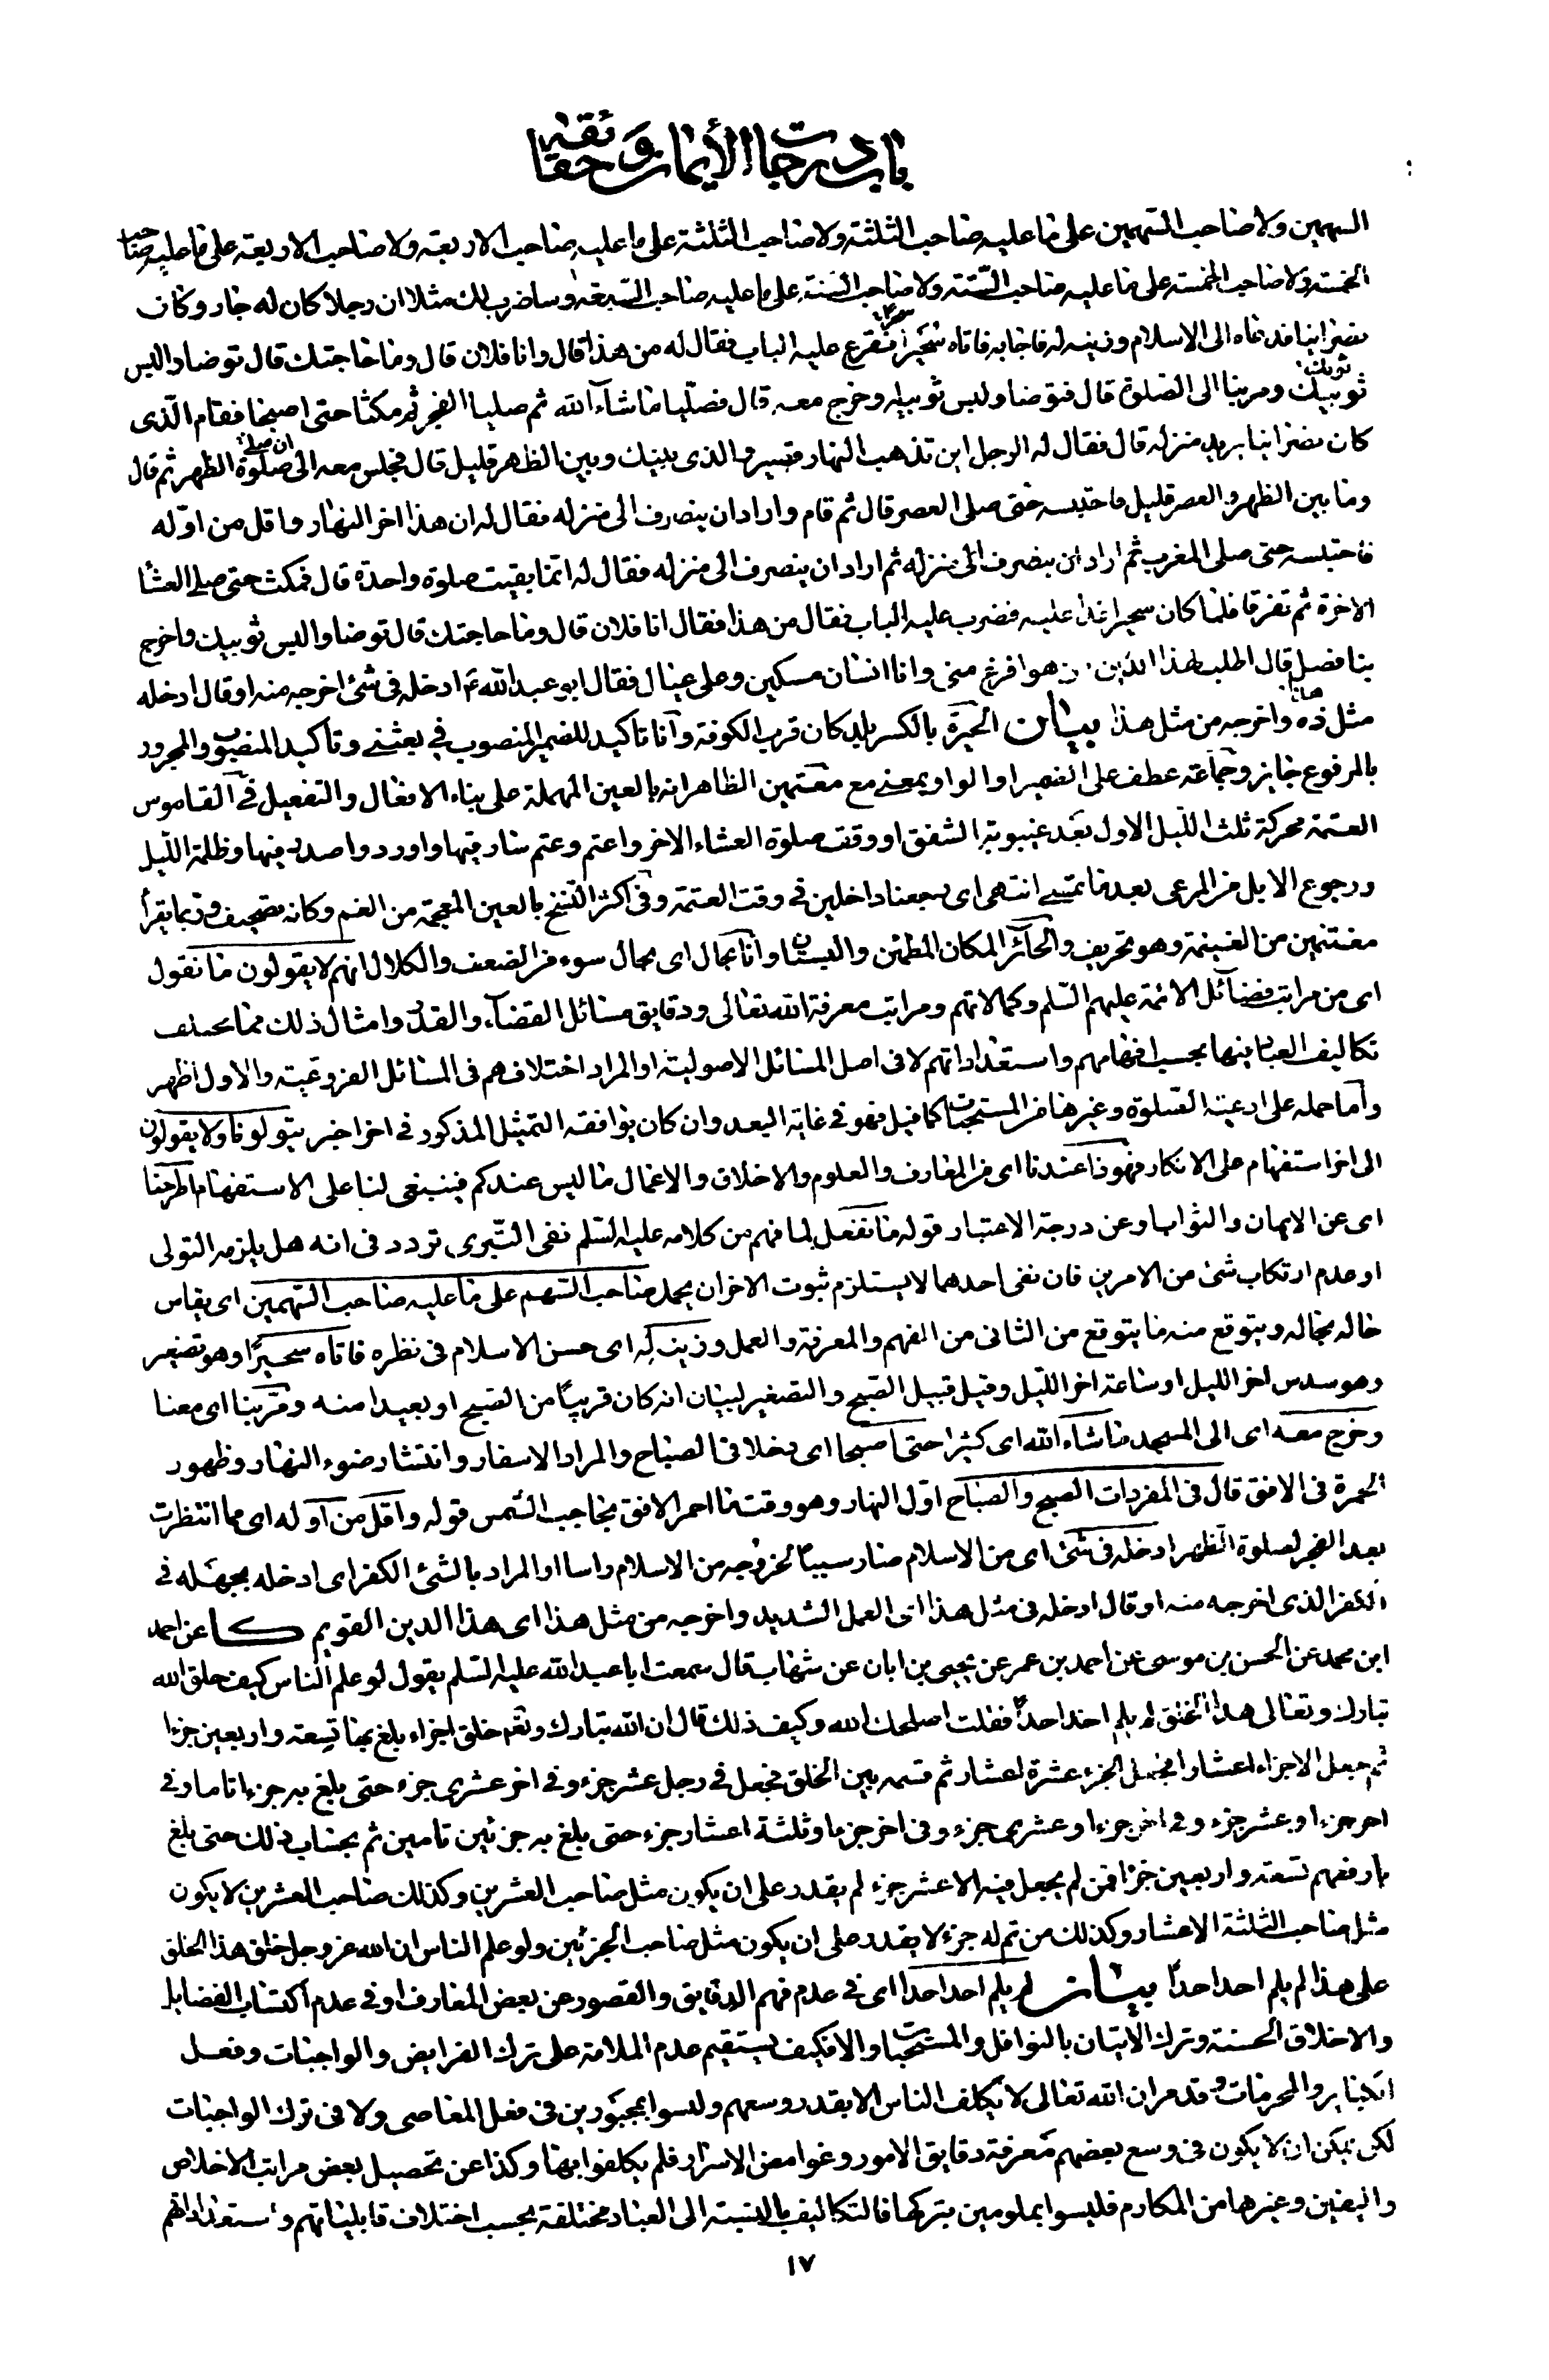 باب درجات الأيمان وحقائقه
السهمين ولا صاحب السهمين على ما عليه صاحب الثلثة ولا صاحب الثلثة على ما عليه صاحب الاربعة ولا صاحب الاربعة على ما عليه صاحب
الخمسة ولا صاحب الخمسة على ما عليه صاحب الستة ولا صاحب الستة على ما عليه صاحب السبعة وساضرب لك مثلا ان رجلا كان له جار وكان
نصرانيا فدعاه الى الاسلام وزينه له فاجابه فاتاه سحيرا فقرع عليه الباب فقال له من هذا قال وانا فلان قال وما حاجتك قال توضا والبس
ثوبيك ومر بنا الى الصلوة قال فتوضا ولبس ثوبيه وخرج معه قال فصليا ما شآء الله ثم صليا الفجر ثم مكثا حتى اصبحا فقام الذى
كان نصرانيا يريد منزله قال فقال له الرجل اين تذهب النهار قصير والذى بينك وبين الظهر قليل قال فجلس معه الى صلوة الظهر ثم قال
وما بين الظهر والعصر قليل فاحتبسه حتى صلى العصر قال ثم قام واراد ان ينصرف الى منزله فقال له ان هذا اخر النهار واقل من اوله
فاحتبسه حتى صلى المغرب ثم اراد ان ينصرف الى منزله ثم اراد ان ينصرف الى منزله فقال له انما بقيت صلوة واحدة قال فمكث حتى صلى العشا
الاخرة ثم تفرقا فلما كان سحيرا غدا عليه فضرب عليه الباب فقال من هذا فقال انا فلان قال وما حاجتك قال توضا والبس ثوبيك واخرج
بنا فصل قال اطلب لهذا الدين من هو افرغ منى وانا انسان مسكين وعلى عيال فقال ابو عبد الله ع ادخله فى شئ اخرجه منه او قال ادخله
مثل ذه واخرجه من مثل هذا بيان الحيرة بالكسر بلد كان قرب الكوفة وانا تاكيد للضمير المنصوب فى بعثنى وتاكيد المنصوب والمجرور
بالمرفوع جايز وجماعة عطف على الضمير او الواو بمعنى مع معتمين الظاهر انه بالعين المهملة على بناء الافعال والتفعيل فى القاموس
العتمة محركة ثلث الليل الاول بعد غيبوبة الشفق او وقت صلوة العشاء الاخر واعتم وعتم سار فيها او اورد واصدر فيها وظلمة الليل
ورجوع الابل من المرعى بعد ما تمسى انتهى اى رجعنا داخلين فى وقت العتمة وفى اكثر النسخ بالغين المعجمة من الغم وكانه تصحيف وربما يقرأ
مغتنمين من الغنيمة وهو تحريف والحآئر المكان المطمئن والبستان وانا بحال اى بحال سوء من الضعف والكلال انهم لا يقولون ما نقول
اى من مراتب فضآئل الائمة عليهم السلم وكمالاتهم ومراتب معرفة الله تعالى ودقايق مسائل القضآء والقدر وامثال ذلك مما يختلف
تكاليف العباد فيها بحسب افهامهم واستعداداتهم لا فى اصل المسائل الاصولية او المراد اختلافهم فى المسائل الفروعية والاول اظهر
وأما حمله على ادعية الصلوة وغيرها من المستحبات كما قيل فهو فى غاية البعد وان كان يوافقه التمثيل المذكور فى اخر الخبر يتولونا ولا يقولون
الى اخر استفهام على الانكار فهو ذا عندنا اى من المعارف والعلوم والاخلاق والاعمال ما ليس عندكم فينبغى لنا على الاستفهام اطرحنا
اى عن الايمان والثواب او عن درجة الاعتبار قوله ما نفعل لما فهم من كلامه عليه السلم نفى التبرى تردد فى انه هل يلزمه التولى
او عدم ارتكاب شئ من الامرين فان نفى احدهما لا يستلزم ثبوت الاخر ان يحمل صاحب السهم على ما عليه صاحب السهمين اى يقاس
حاله بحاله ويتوقع منه ما يتوقع من الثانى من الفهم والمعرفة والعمل وزينه له اى حسن الاسلام فى نظره فاتاه سحيرًا وهو تصغير
وهو سدس اخر الليل او ساعة اخر الليل وقيل قبيل الصبح والتصغير لبيان انه كان قريبًا من الصبح او بعيدا منه ومر بنا اى معنا
وخرج معه اى الى المسجد ما شاء الله اى كثيرا حتى اصبحا اى دخلا فى الصباح والمراد الاسفار وانتشار ضوء النهار وظهور
الحمرة فى الافق قال فى المفردات الصبح والصباح اول النهار وهو وقت ما احمر الافق بحاجب الشمس قوله واقل من اوله اى مما انتظرت
بعد الفجر لصلوة الظهر ادخله فى شئ اى من الاسلام صار سببا لخروجه من الاسلام راسا او المراد بالشئ الكفر اى ادخله بجهله فى
الكفر الذى اخرجه منه او قال ادخله فى مثل هذا اى العمل الشديد واخرجه من مثل هذا اى هذا الدين القويم كا عن احمد
ابن محمد عن الحسن بن موسى عن احمد بن عمر عن يحيى بن ابان عن شهاب قال سمعت ابا عبد الله عليه السلم يقول لو علم الناس كيف خلق الله
تبارك وتعالى هذا الخلق لم يلم احد احداً فقلت اصلحك الله وكيف ذلك قال ان الله تبارك وتعم خلق اجزاء بلغ بها تسعة واربعين جزءا
ثم جعل الاجزاء اعشارا فجعل الجزء عشرة اعشار ثم قسمه بين الخلق فجعل فى رجل عشر جزء وفى اخر عشرى جزء حتى بلغ به جزءا تاما وفى
اخر جزءا وعشر جزء وفى اخر جزءا وعشرى جزء وفى اخر جزءا وثلثة اعشار جزء حتى بلغ به جزئين تامين ثم بحساب ذلك حتى بلغ
بارفعهم تسعة واربعين جزءا فمن لم يجعل فيه الا عشر جزء لم يقدر على ان يكون مثل صاحب العشرين وكذلك صاحب العشرين لا يكون
مثل صاحب الثلثة الاعشار وكذلك من تم له جزء لا يقدر على ان يكون مثل صاحب الجزئين ولو علم الناس ان الله عز وجل خلق هذا الخلق
على هذا لم يلم احد احدًا بيان لم يلم احد احدا اى فى عدم فهم الدقايق والقصور عن بعض المعارف او فى عدم اكتساب الفضايل
والاخلاق الحسنة وترك الاتيان بالنوافل والمستحبات والا فكيف يستقيم عدم الملامة على ترك الفرايض والواجبات وفعل
الكباير والمحرمات وقد مر ان الله تعالى لا يكلف الناس الا بقدر وسعهم وليسوا بمجبورين فى فعل المعاصى ولا فى ترك الواجبات
لكن يمكن ان لا يكون فى وسع بعضهم معرفة دقايق الامور وغوامض الاسرار فلم يكلفوا بها وكذا عن تحصيل بعض مراتب الاخلاص
واليقين وغيرها من المكارم فليسوا بملومين بتركها فالتكاليف بالنسبة الى العباد مختلفة بحسب اختلاف قابلياتهم واستعداداتهم
١٧